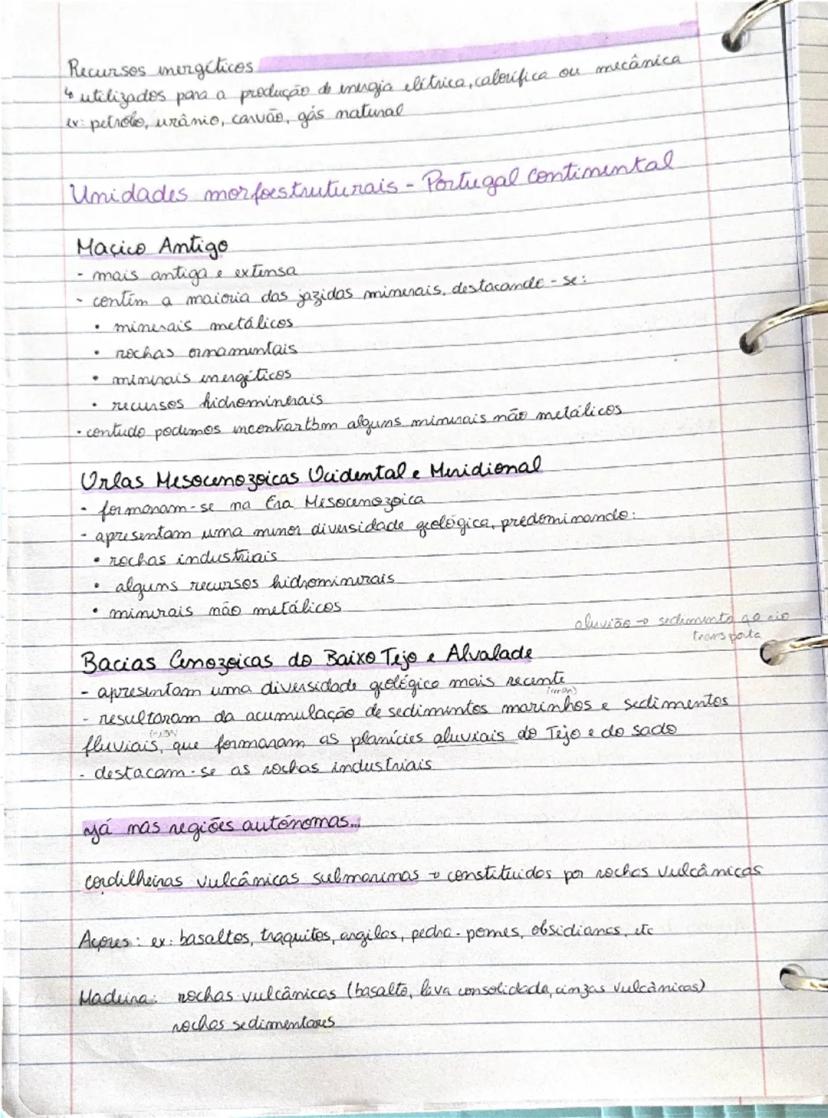 Recursos energéticos
↳ utilizados para a produção de energia elétrica, calorífica ou mecânica
ex: petróleo, urânio, carvão, gás natural
Unidades morfoestruturais - Portugal Continental
Maciço Antigo
- mais antiga e extensa
- contém a maioria das jazidas minerais, destacando-se:
• minerais metálicos
• rochas ornamentais
• minerais energéticos
• recursos hidrominerais
- contudo podemos encontrar tbm alguns minerais não metálicos
Orlas Mesocenozoicas Ocidental e Meridional
- formaram-se na Era Mesocenozoica
- apresentam uma menor diversidade geológica, predominando:
• rochas industriais
• alguns recursos hidrominerais
• minerais não metálicos
aluvião → sedimento qe rio
transporta
Bacias Cenozoicas do Baixo Tejo e Alvalade
- apresentam uma diversidade geológica mais recente
(mar)
- resultaram da acumulação de sedimentos marinhos e sedimentos
(rios)
fluviais, que formaram as planícies aluviais do Tejo e do sado
- destacam-se as rochas industriais
Já nas regiões autónomas...
cordilheiras vulcânicas submarinas → constituidos por rochas vulcânicas
Açores: ex: basaltos, traquitos, argilas, pedra-pomes, obsidianas, etc
Madeira: rochas vulcânicas (basalto, lava consolidada, cinzas vulcânicas)
rochas sedimentares